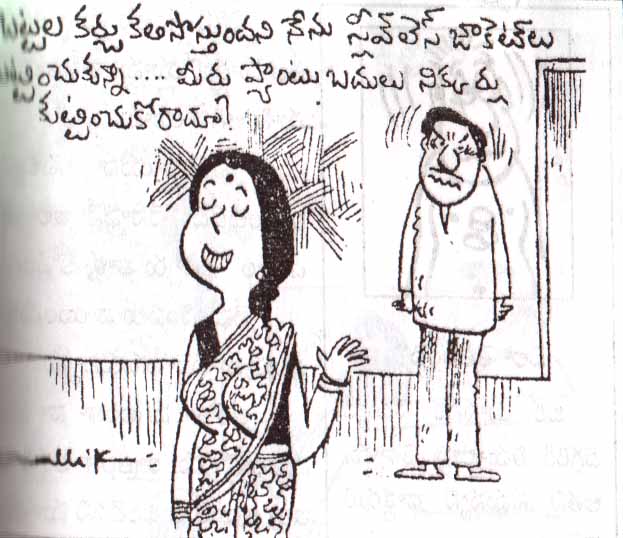 బట్టల కర్చు కలిసొస్తుందని నేను స్లీవ్‌లెస్ జాకెట్‌లు
కుట్టించుకున్నా .... మీరు ప్యాంటు బదులు నిక్కర్లు
కుట్టించుకోరాదూ?